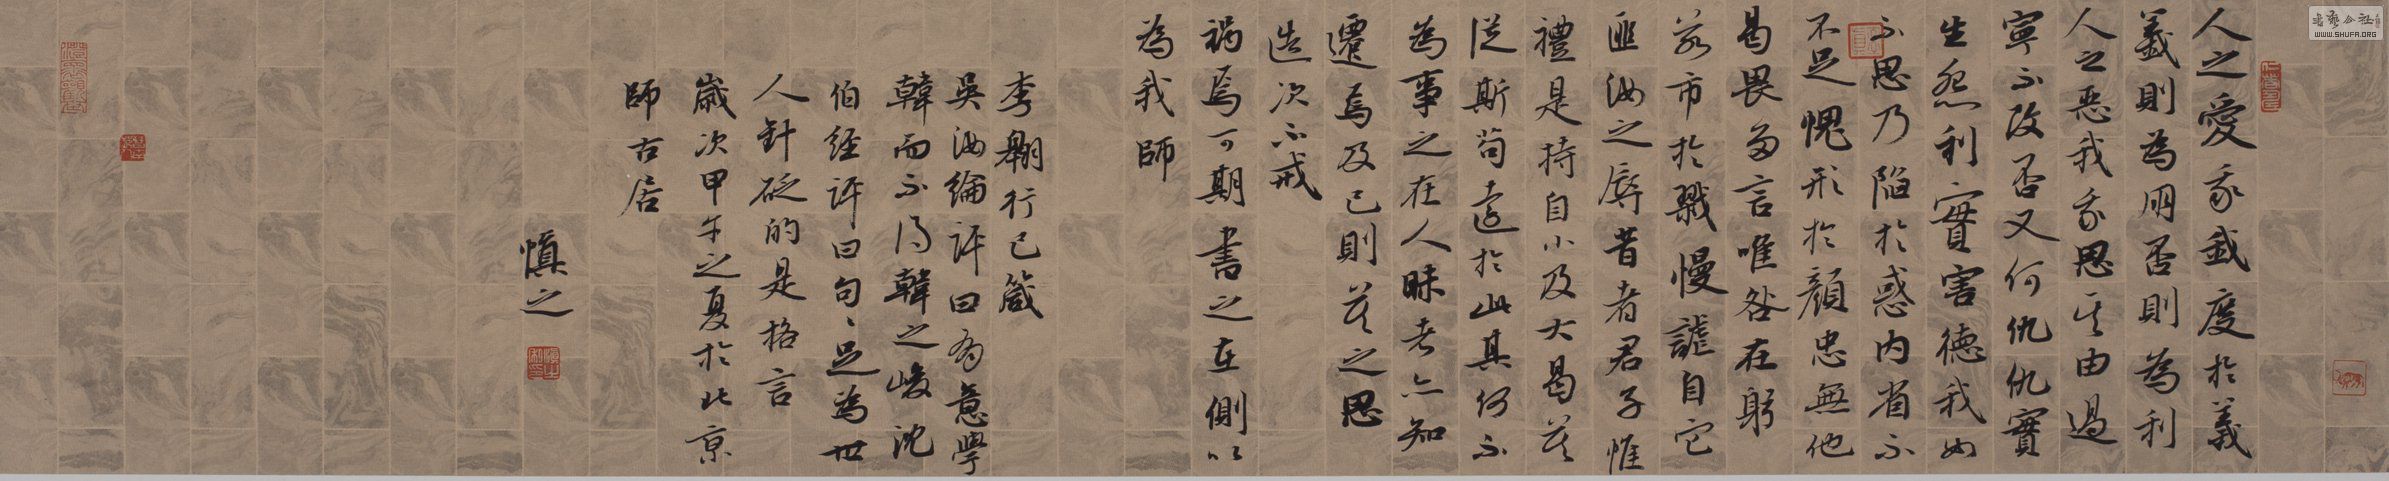 人之愛我我度於義
義則為朋否則為利
人之惡我我思其由過
寧不改否又何仇仇實
生怨利實害德我如
不思乃陷於惑內省不
不足愧形於顏忠無他
曷畏多言唯咎在躬
若市於戮慢謔自它
匪汝之辱昔者君子惟
禮是持自小及大曷莫
從斯苟遠於此其何不
為事之在人昧者亦知
遷焉及己則莫之思
造次不戒
禍焉可期書之在側以
為我師
李翱行己箴
吳汝綸評曰為意學
韓而不得韓之峻沈
伯經評曰句句足為世
人針砭的是格言
歲次甲午之夏於北京
師古居
慎之
書藝公社
WWW.SHUFA.ORG